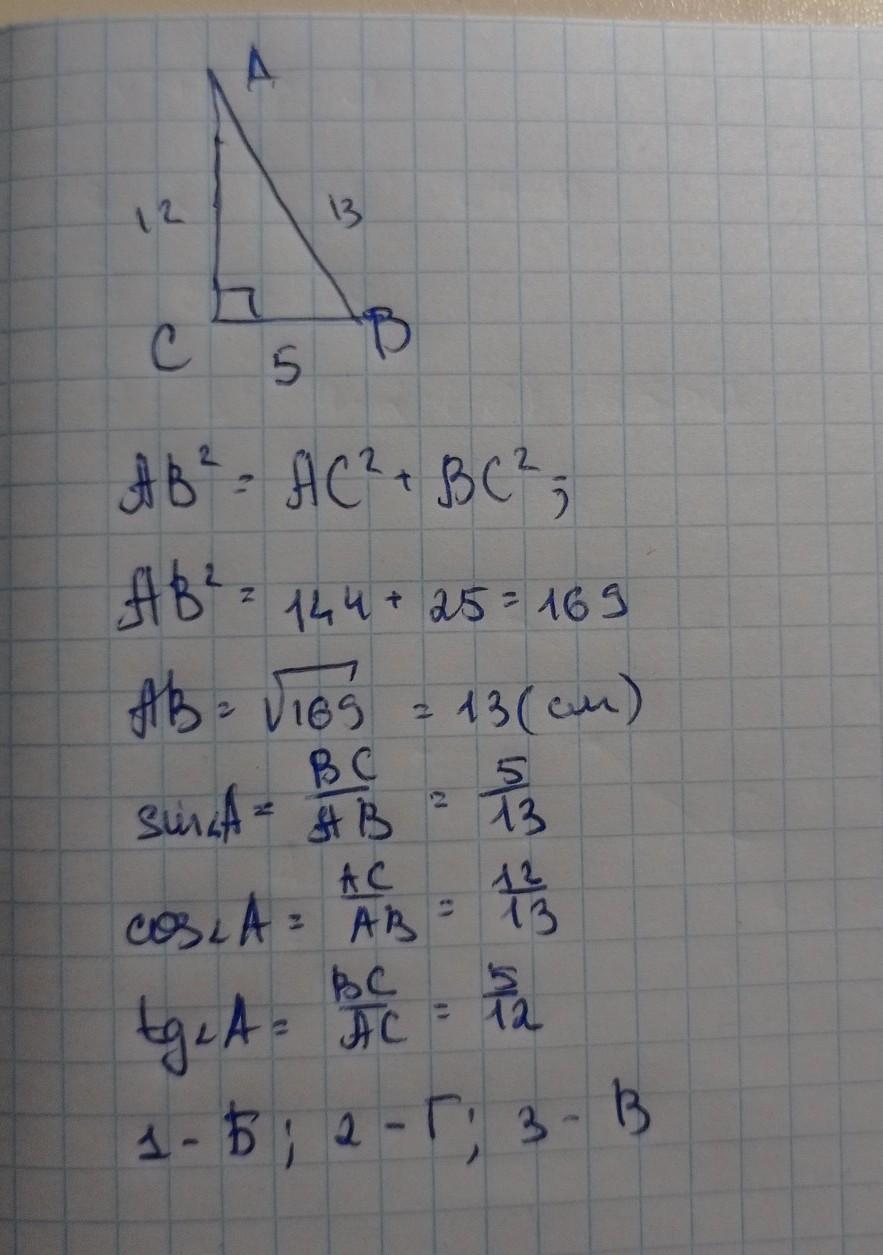 A
12
13
C
5
B
AB² = AC² + BC²;
AB² = 144 + 25 = 169
AB = √169 = 13 (см)
sin∠A = BC/AB = 5/13
cos∠A = AC/AB = 12/13
tg∠A = BC/AC = 5/12
1 - Б; 2 - Г; 3 - В